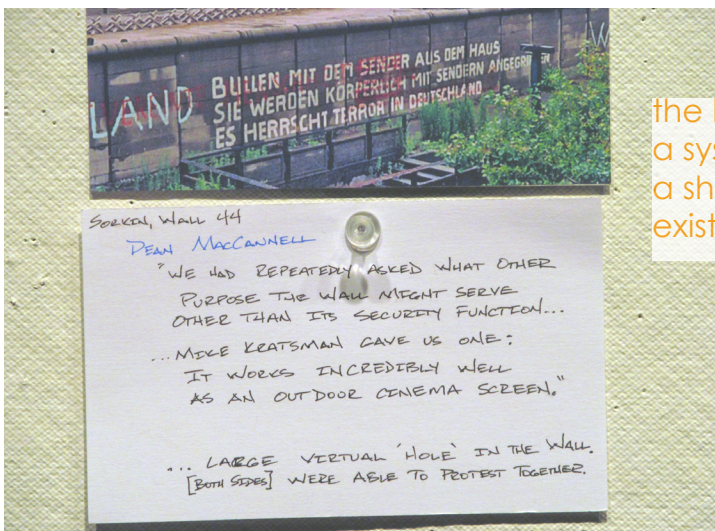 LAND
BULLEN MIT DEM SENDER AUS DEM HAUS
SIE WERDEN KÖRPERLICH MIT SENDERN ANGEGRIFFEN
ES HERRSCHT TERROR IN DEUTSCHLAND
SORKIN, WALL 44
DEAN MACCANNELL
"WE HAD REPEATEDLY ASKED WHAT OTHER
PURPOSE THE WALL MIGHT SERVE
OTHER THAN ITS SECURITY FUNCTION...
...MIKE KRATSMAN GAVE US ONE:
IT WORKS INCREDIBLY WELL
AS AN OUTDOOR CINEMA SCREEN."
... LARGE VIRTUAL 'HOLE' IN THE WALL.
[BOTH SIDES] WERE ABLE TO PROTEST TOGETHER.
the
a sys
a sh
exist